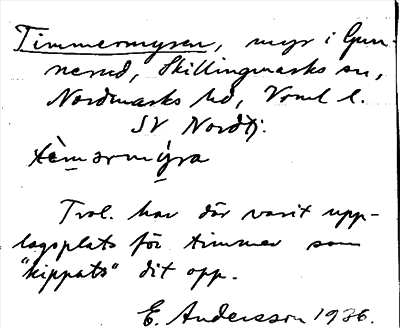 Timmermyren, myr i Gun-
nerud, Skillingmarks sn,
Nordmarks hd, Verml l.
SV Nordtj.
tèmərmýra
Trol. har där varit upp-
lagsplats för timmer som
"kippats" dit opp.
E. Andersson 1936.